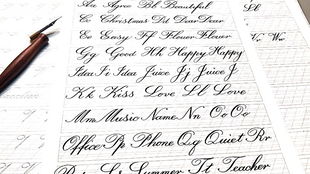 Aa Agree Bb Beautiful
Cc Christmas Dd Dear Dear
Ee Easy Ff Flower Flower
Gg Good Hh Happy Happy
Idea Ii Idea Juice Jj Juice J
Kk Kiss Love Ll Love
Mm Music Name Nn Oo Oo
Office Pp Phone Qq Quiet Rr
Ss Summer Tt Teacher
Ll
Vv We